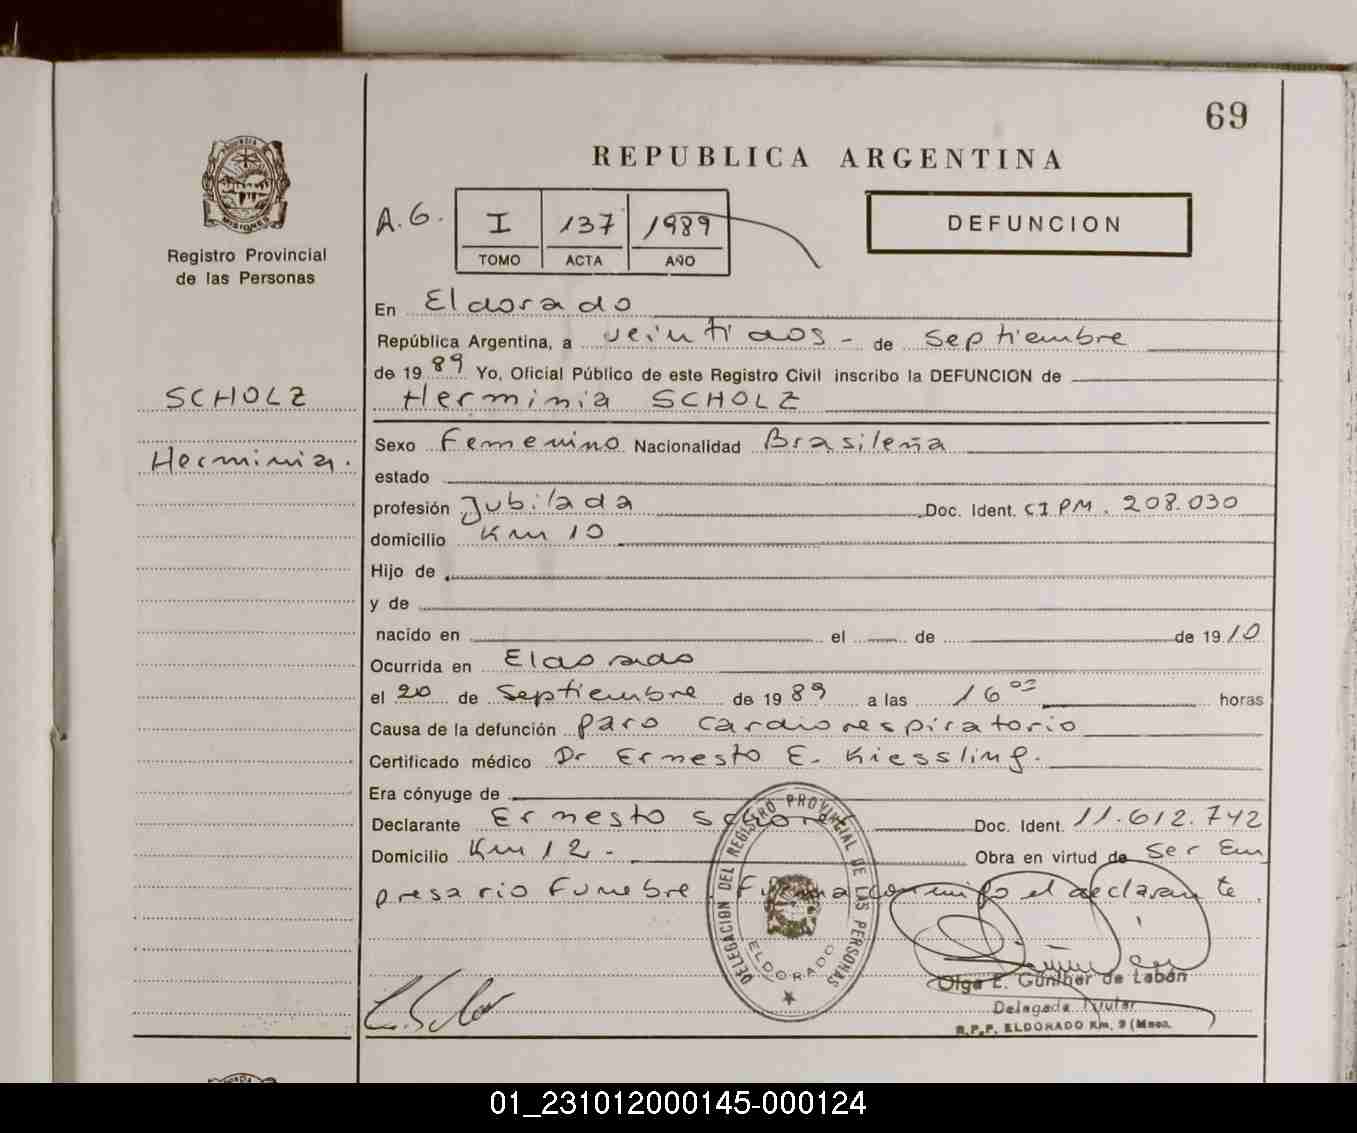 69
REPUBLICA ARGENTINA
PROVINCIA
MISIONES
Registro Provincial
de las Personas
A.G. I 137 1989
TOMO ACTA AÑO
DEFUNCION
En Eldorado
República Argentina, a veintidos - de Septiembre
de 1989 Yo, Oficial Público de este Registro Civil inscribo la DEFUNCION de
SCHOLZ
Herminia SCHOLZ
Herminia.
Sexo Femenino Nacionalidad Brasileña
estado
profesión Jubilada Doc. Ident. CI PM. 208.030
domicilio Km 10
Hijo de
y de
nacido en el de de 1910
Ocurrida en Eldorado
el 20 de Septiembre de 1989 a las 16 00 horas
Causa de la defunción paro cardiorespiratorio
Certificado médico Dr Ernesto E. Kiessling.
Era cónyuge de
Declarante Ernesto Doc. Ident. 11.612.742
Domicilio Km 12 - Obra en virtud de Ser Em
presario Funebre. Firma conmigo el declarante.
DELEGACION DEL REGISTRO PROVINCIAL DE LAS PERSONAS
ELDORADO
Olga E. Günther de Labán
Delegada Titular
R.P.P. ELDORADO Km. 9 (Mnes.
01_231012000145-000124